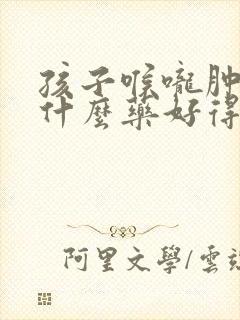 孩子喉嚨肿
什麼藥好得
阿里文學/雲